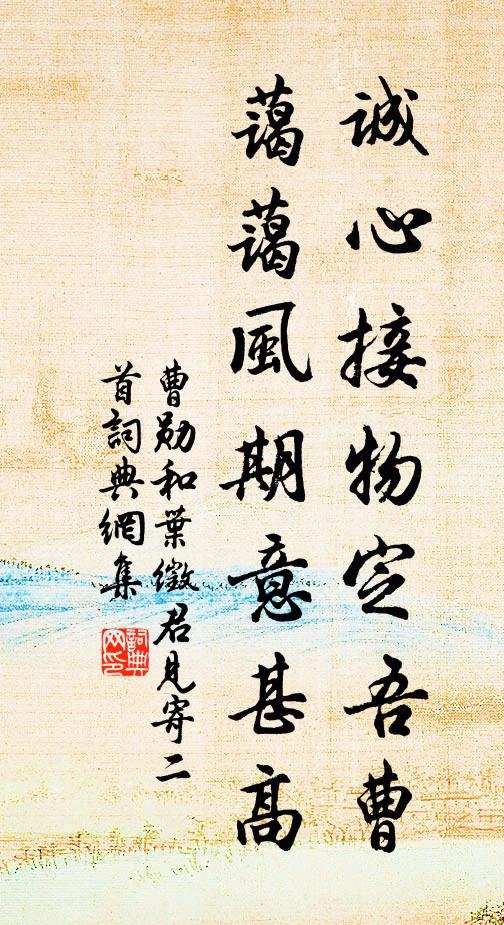 誠心接物定吾曹
藹藹風期意甚高
曹勛和葉徵君見寄二
首詞典網集
詞典
網印